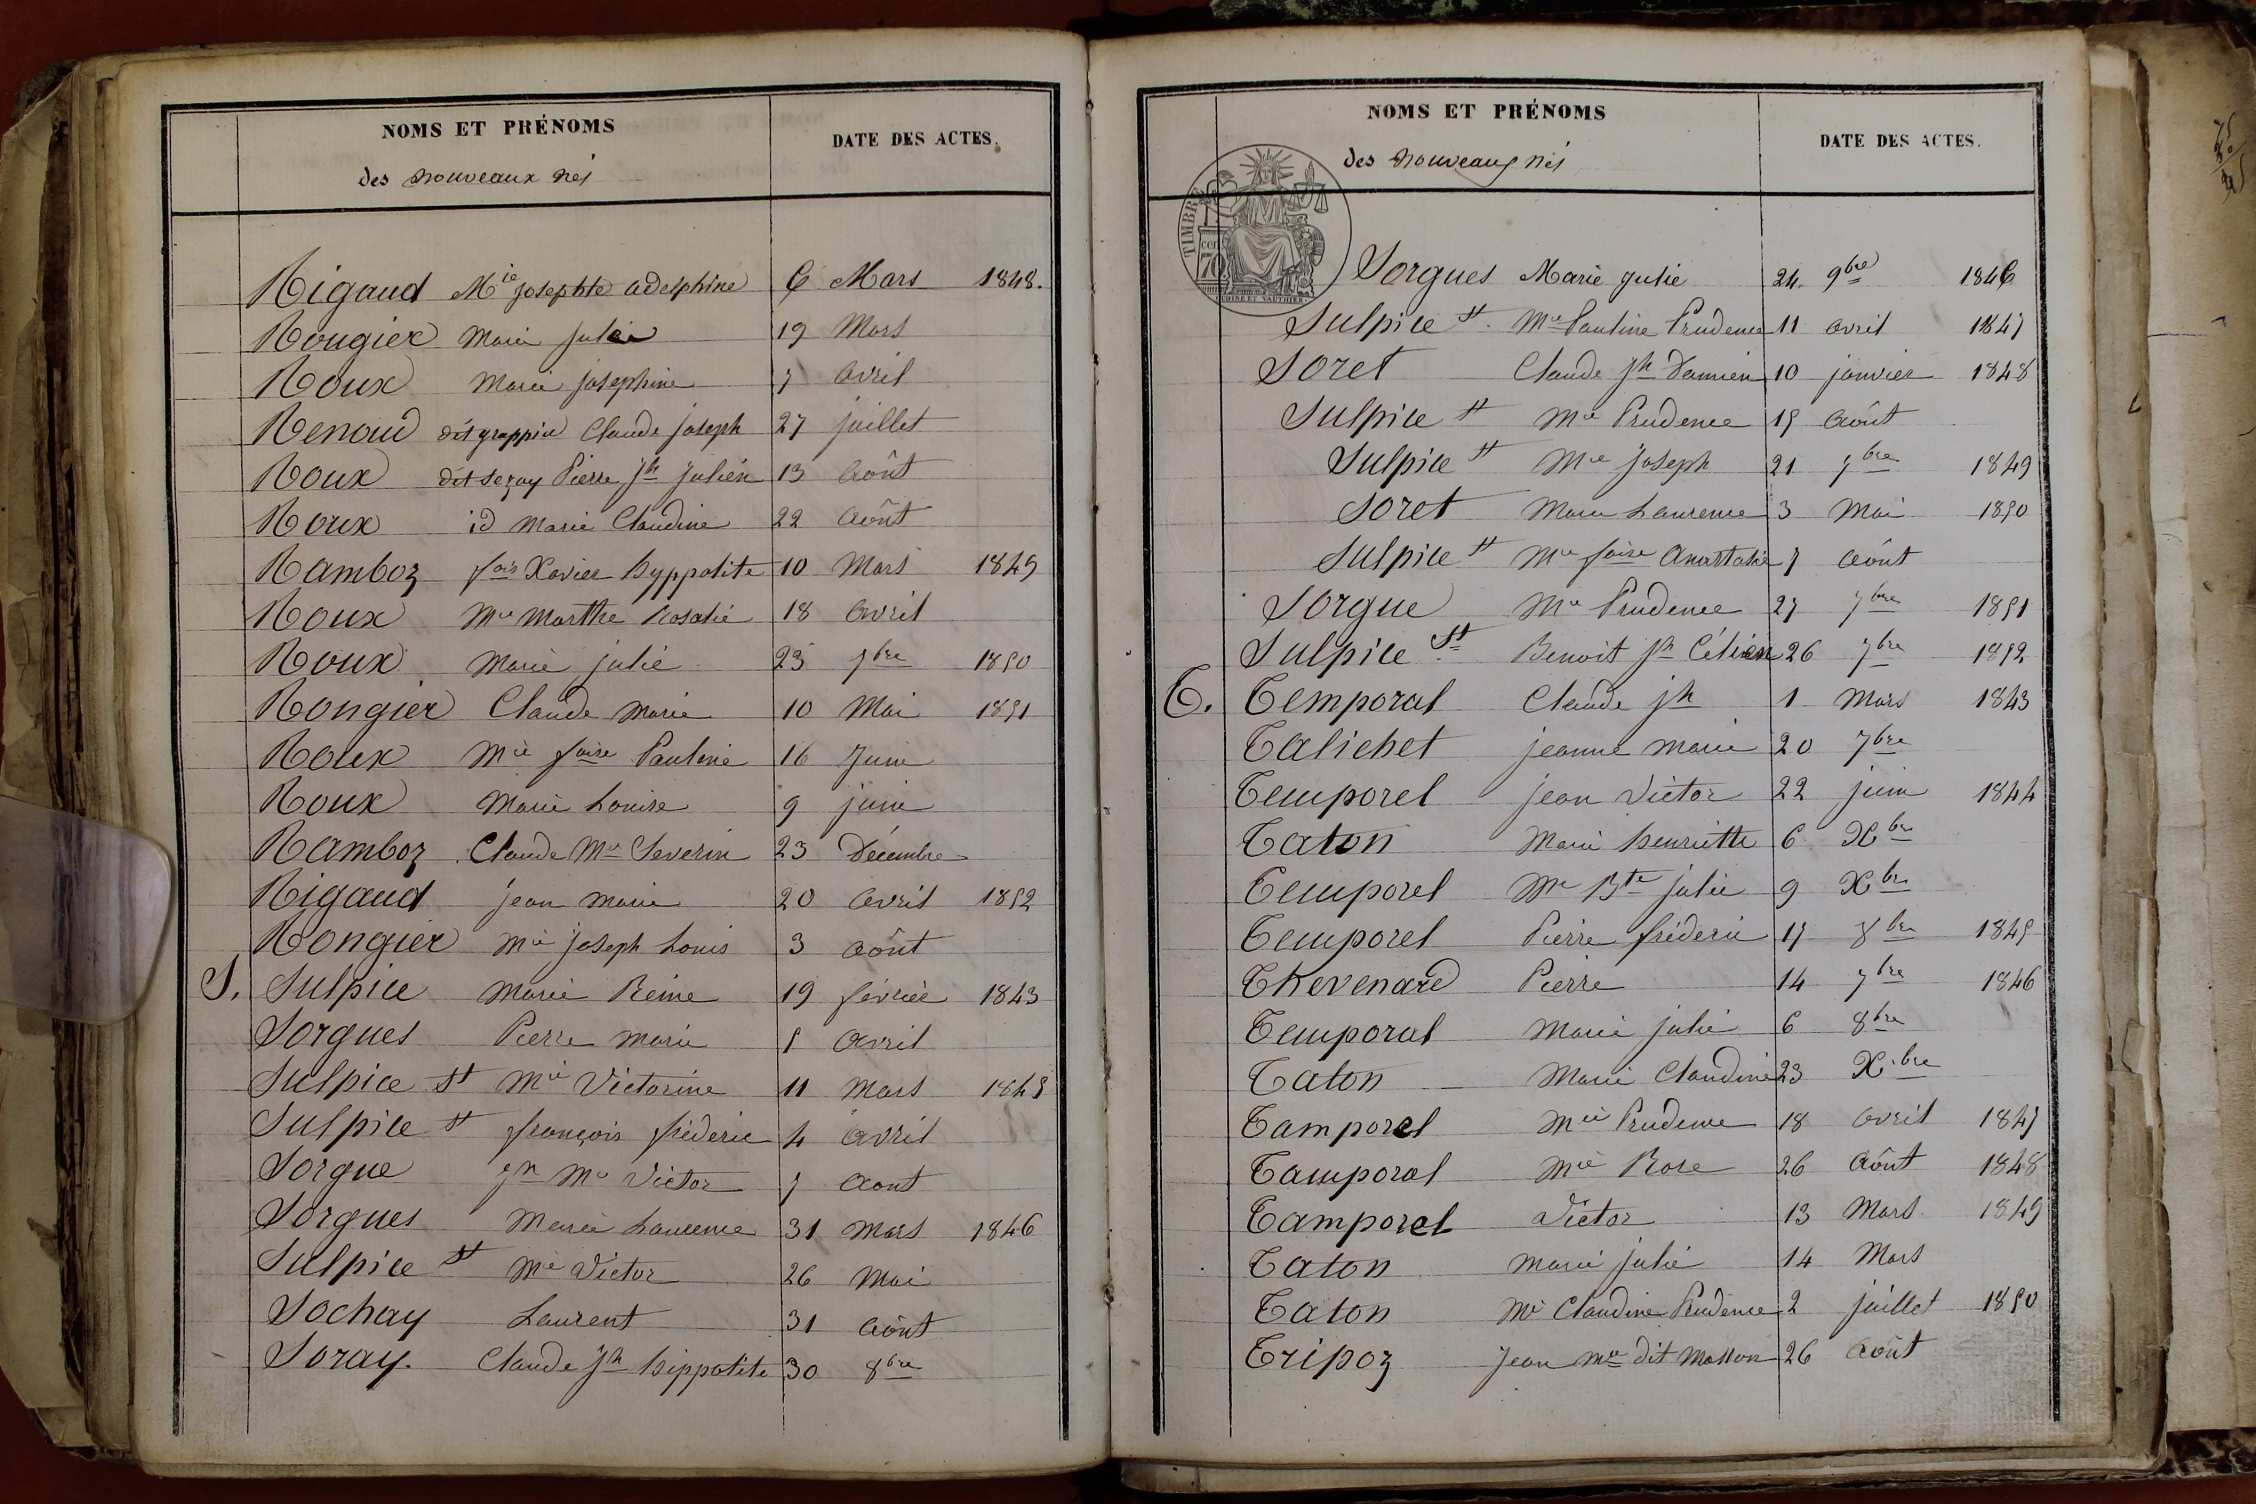 NOMS ET PRÉNOMS DATE DES ACTES.
des nouveaux nés
Rigaud Mie josephte adelphine 6 Mars 1848.
Rougier Marie Julie 19 Mars
Roux Marie josephine 7 avril
Renaud dit grappin Claude joseph 27 juillet
Roux dit seray Pierre Jh julien 13 Août
Roux id Marie Claudine 22 août
Ramboz fois Xavier hyppolite 10 Mars 1849
Roux Mie Marthe Rosalie 18 avril
Roux Marie julie 25 7bre 1850
Rongier Claude Marie 10 Mai 1851
Roux Mie foise Pauline 16 Juin
Roux Marie Louise 9 juin
Ramboz Claude Mie Severin 23 Décembre
Rigaud jean marie 20 avril 1852
Rongier Mie joseph Louis 3 août
S. Sulpice Marie Reine 19 février 1843
Sorgues Pierre Marie 5 avril
Sulpice St Mie Victorine 11 Mars 1845
Sulpice St françois fréderic 4 avril
Sorgue jn Mie Victor 7 aout
Sorgues Marie Laurence 31 Mars 1846
Sulpice St Mie Victor 26 Mai
Sochay Laurent 31 août
Soray. Claude Jh hippolite 30 8bre
NOMS ET PRÉNOMS DATE DES ACTES.
des nouveaux nés
TIMBRE
70
Sorgues Marie julie 24 9bre 1846
Sulpice St Mie Pauline Prudence 11 avril 1847
Soret Claude Jh Damien 10 janvier 1848
Sulpice St Mie Prudence 15 août
Sulpice St Mie Joseph 21 7bre 1849
Soret Marie Laurence 3 Mai 1850
Sulpice St Mie foise Anastasie 7 août
Sorgue Mie Prudence 27 7bre 1851
Sulpice St Benoit Jh Célien 26 7bre 1852
T. Temporal Claude jh 1 Mars 1843
Talichet jeanne marie 20 7bre
Temporel jean Victor 22 juin 1844
Taton Marie henriette 6 Xbre
Temporel Mie Bte julie 9 Xbre
Temporel Pierre fréderic 17 8bre 1845
Thevenard Pierre 14 7bre 1846
Temporal Marie julie 6 8bre
Taton Marie Claudine 23 Xbre
Tamporel Mie Prudence 18 avril 1847
Tamporal Mie Rose 26 Août 1848
Tamporel Victor 13 Mars 1849
Taton Marie julie 14 Mars
Taton Mie Claudine Prudence 2 juillet 1850
Tripoz Jean Mie dit Masson 26 août